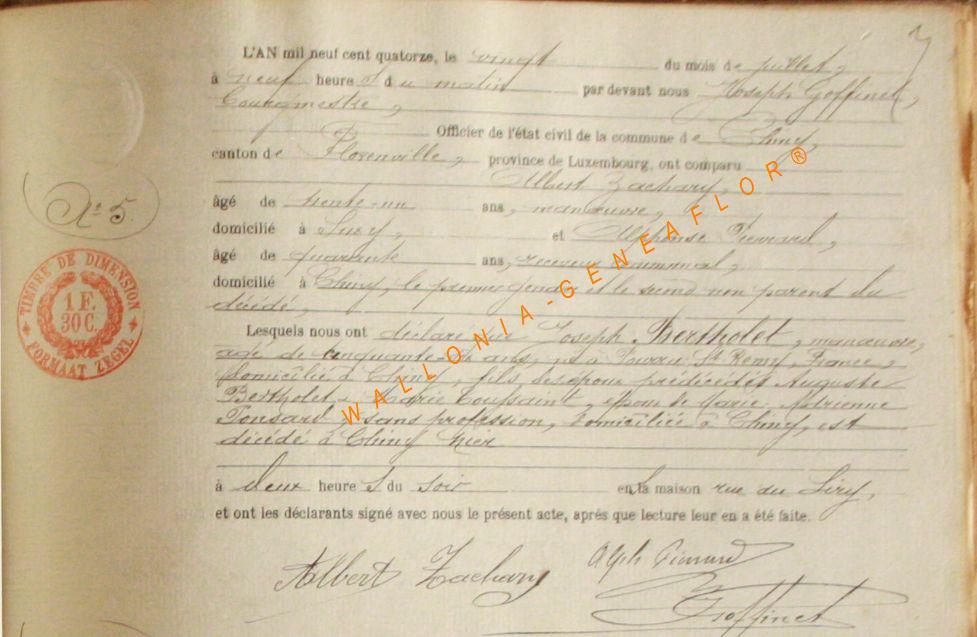 L'AN mil neuf cent quatorze, le vingt du mois de juillet,
à neuf heure s du matin par devant nous Joseph Goffinet,
Bourgmestre,
Officier de l'état civil de la commune de Chiny,
canton de Florenville, province de Luxembourg, ont comparu
Albert Zachary,
âgé de trente-un ans, manœuvre,
domicilié à Izel, et Alphonse
âgé de quarante ans, receveur communal,
domicilié à Chiny, le premier gendre et le second non parent du
décédé,
Lesquels nous ont déclaré que Joseph Bertholet, manœuvre,
âgé de cinquante- ans, né à Pourru St Remy, France,
domicilié à Chiny, fils des époux prédécédés Auguste
Bertholet - Marie Toussaint, époux de Marie Adrienne
Ponsard, sans profession, domiciliée à Chiny, est
décédé à Chiny hier
à deux heure s du soir en sa maison rue du
et ont les déclarants signé avec nous le présent acte, après que lecture leur en a été faite.
Albert Zachary
Alph
Goffinet
N° 5.
TIMBRE DE DIMENSION
1 F.
30 C.
FORMAAT ZEGEL
WALLONIA-GENEAFLOR®